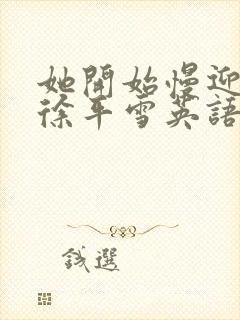 她開始慢迎
徐平雪英語
錢選